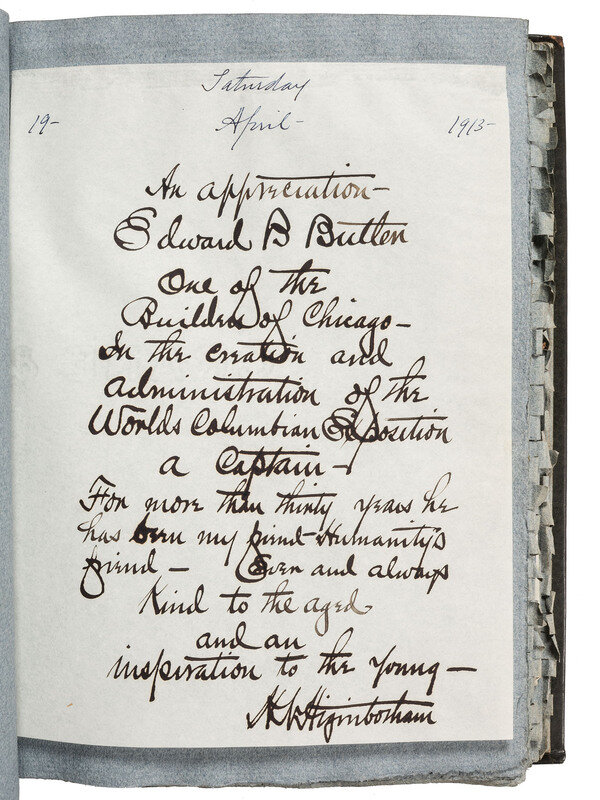 Saturday
19- April- 1913-
An appreciation-
Edward B Butler
One of the
Builders of Chicago-
In the creation and
administration of the
Worlds Columbian Exposition
a Captain-
For more than thirty years he
has been my friend-Humanity's
friend- Ever and always
Kind to the aged
and an
inspiration to the young-
H N Higinbotham